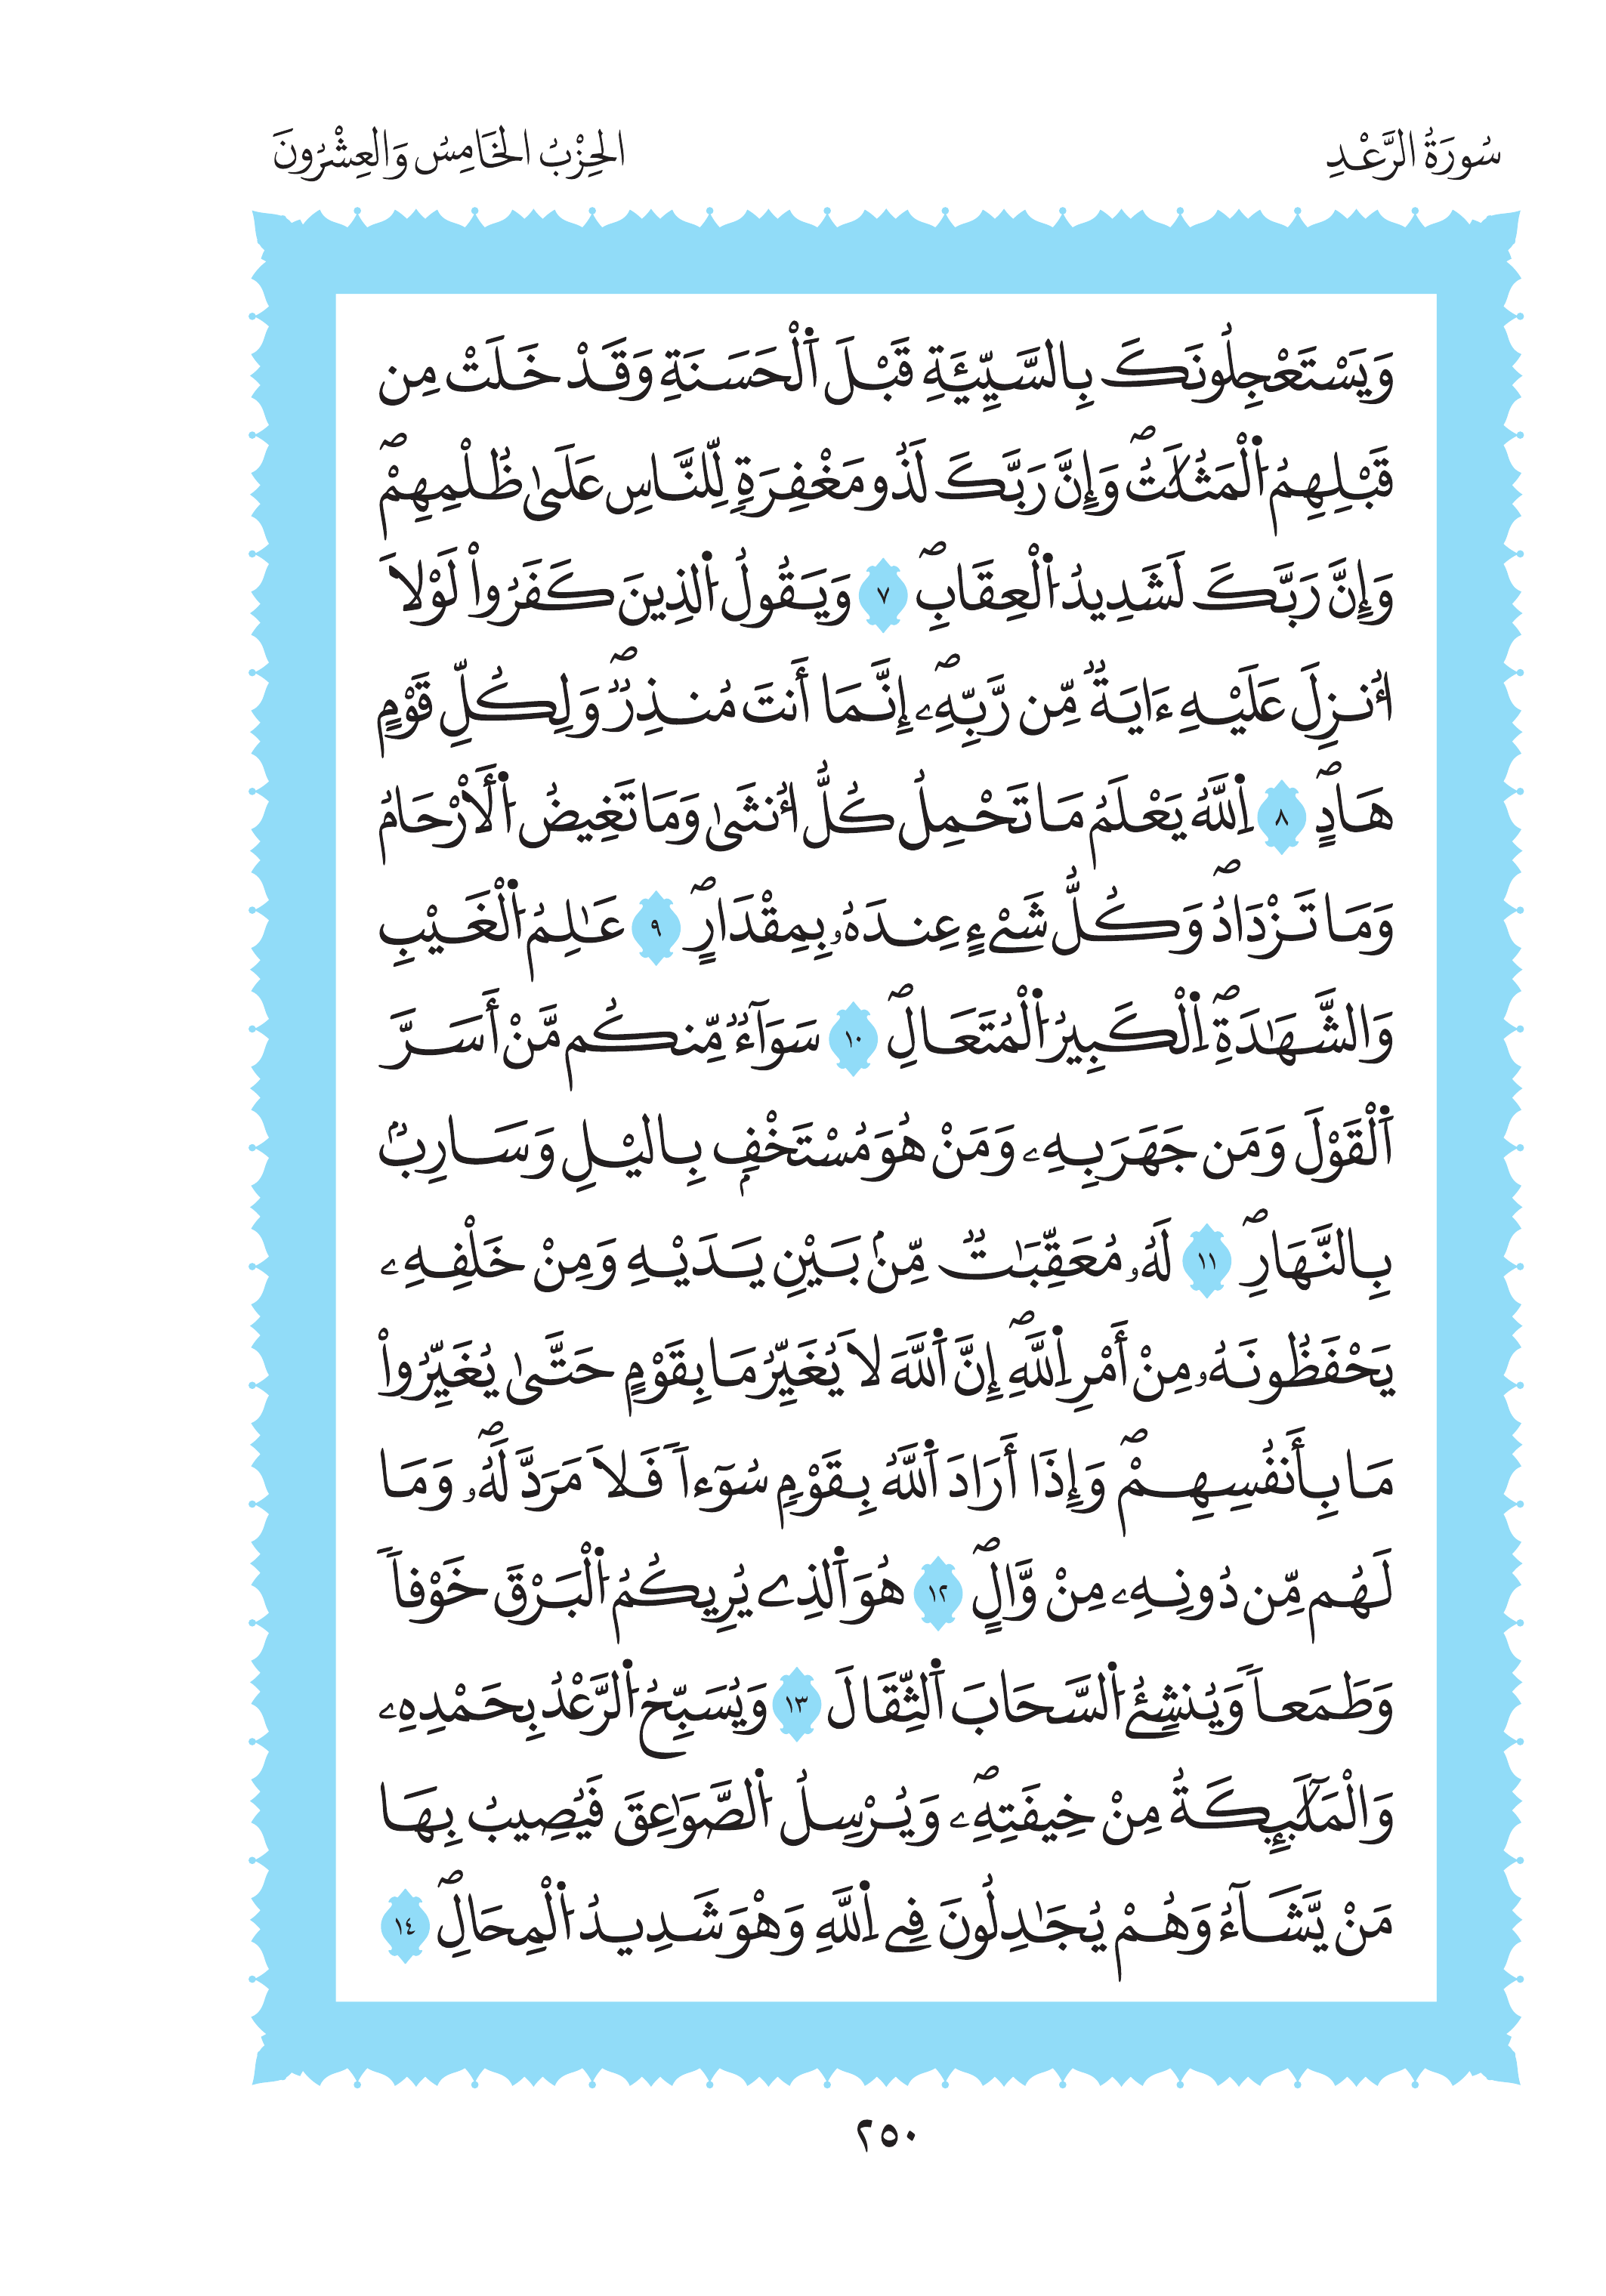 سُورَةُ الرَّعْدِ
الحِزْبُ الخَامِسُ وَالعِشْرُونَ
وَيَسْتَعْجِلُونَكَ بِالسَّيِّئَةِ قَبْلَ اَ۬لْحَسَنَةِ وَقَدْ خَلَتْ مِن
قَبْلِهِمُ اُ۬لْمَثُلَٰتُۖ وَإِنَّ رَبَّكَ لَذُو مَغْفِرَةٖ لِّلنَّاسِ عَلَىٰ ظُلْمِهِمْۖ
وَإِنَّ رَبَّكَ لَشَدِيدُ اُ۬لْعِقَابِۖ ٧ وَيَقُولُ اُ۬لذِينَ كَفَرُواْ لَوْلَا
أُنزِلَ عَلَيْهِ ءَايَةٞ مِّن رَّبِّهِۦۖ إِنَّمَا أَنتَ مُنذِرٞۖ وَلِكُلِّ قَوْمٍ
هَادٍۖ ٨ اِ۬للَّهُ يَعْلَمُ مَا تَحْمِلُ كُلُّ أُنثَىٰ وَمَا تَغِيضُ اُ۬لَارْحَامُ
وَمَا تَزْدَادُۖ وَكُلُّ شَےْءٍ عِندَهُۥ بِمِقْدَارٍۖ ٩ عَٰلِمُ اُ۬لْغَيْبِ
وَالشَّهَٰدَةِۖ اِ۬لْكَبِيرُ اُ۬لْمُتَعَالِۖ ١٠ سَوَآءٞ مِّنكُم مَّنْ أَسَرَّ
اَ۬لْقَوْلَ وَمَن جَهَرَ بِهِۦ وَمَنْ هُوَ مُسْتَخْفِۢ بِاليْلِ وَسَارِبُۢ
بِالنَّهَارِۖ ١١ لَهُۥ مُعَقِّبَٰتٞ مِّنۢ بَيْنِ يَدَيْهِ وَمِنْ خَلْفِهِۦ
يَحْفَظُونَهُۥ مِنْ أَمْرِ اِ۬للَّهِۖ إِنَّ اَ۬للَّهَ لَا يُغَيِّرُ مَا بِقَوْمٍ حَتَّىٰ يُغَيِّرُواْ
مَا بِأَنفُسِهِمْۖ وَإِذَا أَرَادَ اَ۬للَّهُ بِقَوْمٖ سُوٓءاٗ فَلَا مَرَدَّ لَهُۥۖ وَمَا
لَهُم مِّن دُونِهِۦ مِنْ وَّالٍۖ ١٢ هُوَ اَ۬لذِے يُرِيكُمُ اُ۬لْبَرْقَ خَوْفاٗ
وَطَمَعاٗ وَيُنشِئُ اُ۬لسَّحَابَ اَ۬لثِّقَالَ ١٣ وَيُسَبِّحُ اُ۬لرَّعْدُ بِحَمْدِهِۦ
وَالْمَلَٰٓئِكَةُ مِنْ خِيفَتِهِۦۖ وَيُرْسِلُ اُ۬لصَّوَٰعِقَ فَيُصِيبُ بِهَا
مَنْ يَّشَآءُ وَهُمْ يُجَٰدِلُونَ فِے اِ۬للَّهِ وَهْوَ شَدِيدُ اُ۬لْمِحَالِۖ ١٤
٢٥٠